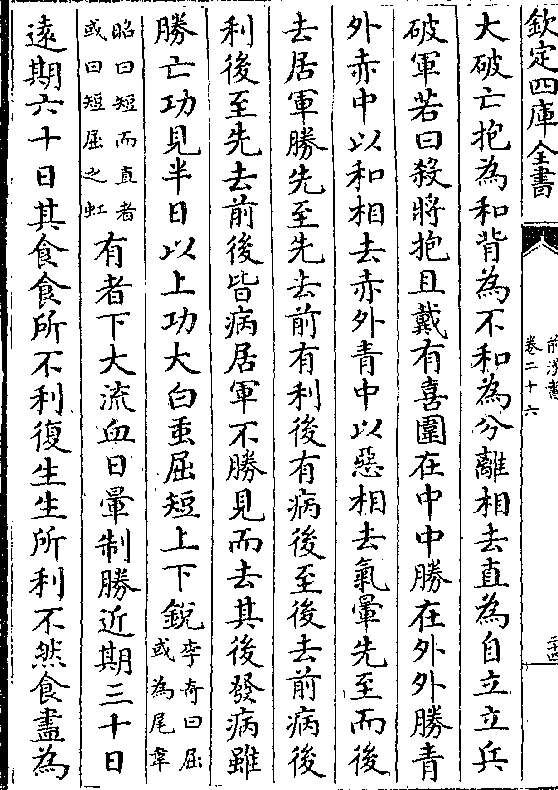 欽定四庫全書
前漢書
卷二十六
大破亡抱為和背為不和為分離相去直為自立立兵
破軍若曰殺將抱且戴有喜圍在中中勝在外外勝青
外赤中以和相去赤外青中以惡相去氣暈先至而後
去居軍勝先至先去前有利後有病後至後去前病後
利後至先去前後皆病居軍不勝見而去其後發病雖
勝亡功見半日以上功大白䖝屈短上下銳李奇曰屈或為尾韋
昭曰短而直者或曰短屈之虹有者下大流血日暈制勝近期三十日
遠期六十日其食食所不利復生生所利不然食盡為